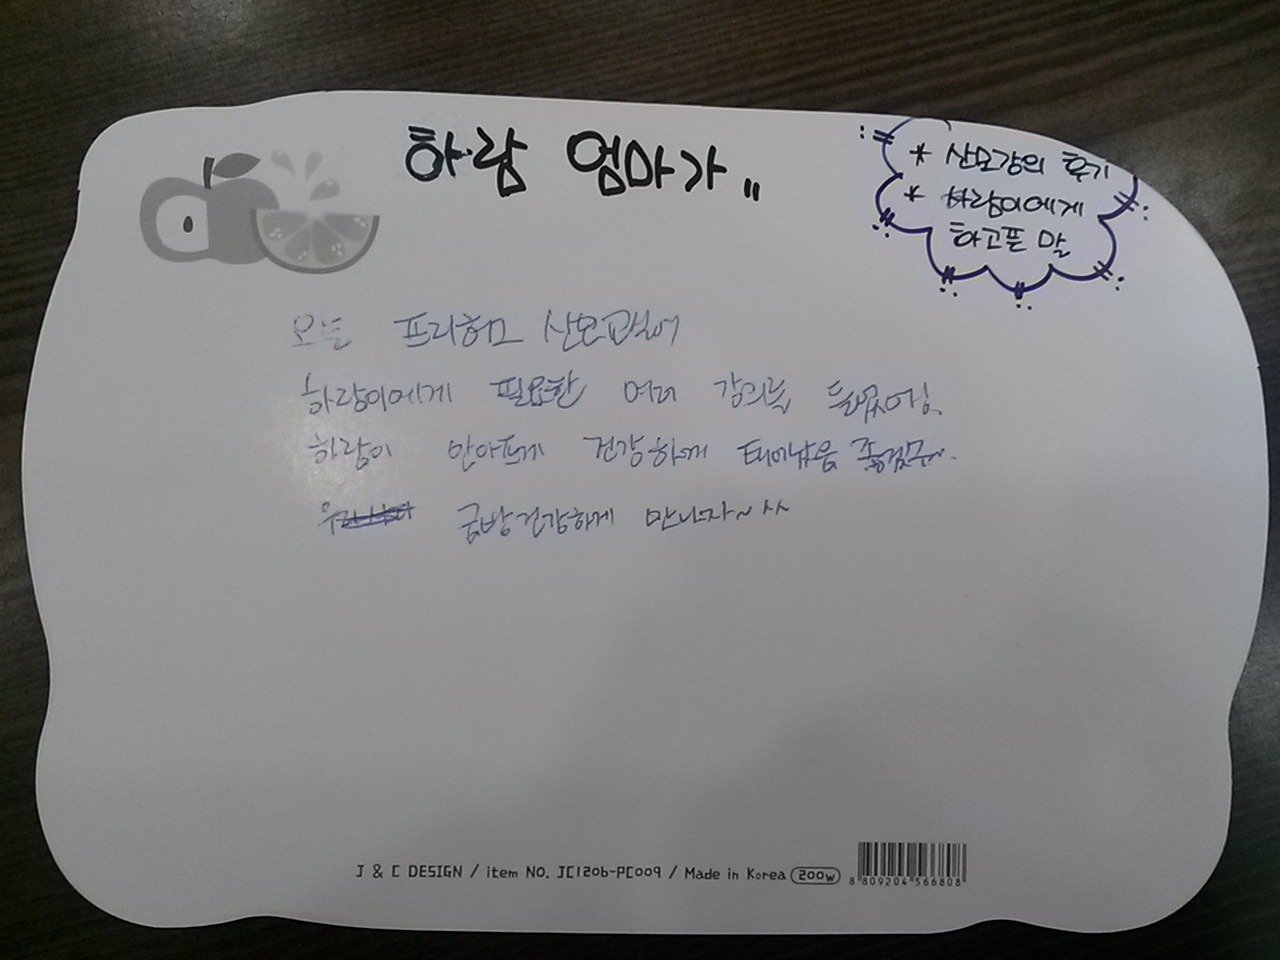 하람 엄마가 "
* 산모강의 후기
* 하람이에게
하고픈 말
오늘 프리허그 산모교실에
하람이에게 필요한 여러 강의를 들었어.
하람이 안아프게 건강하게 태어났음 좋겠구~.
우리 금방 건강하게 만나자~ ^^
J & C DESIGN / item NO. JC1206-PC009 / Made in Korea 200w
8 809204 566808